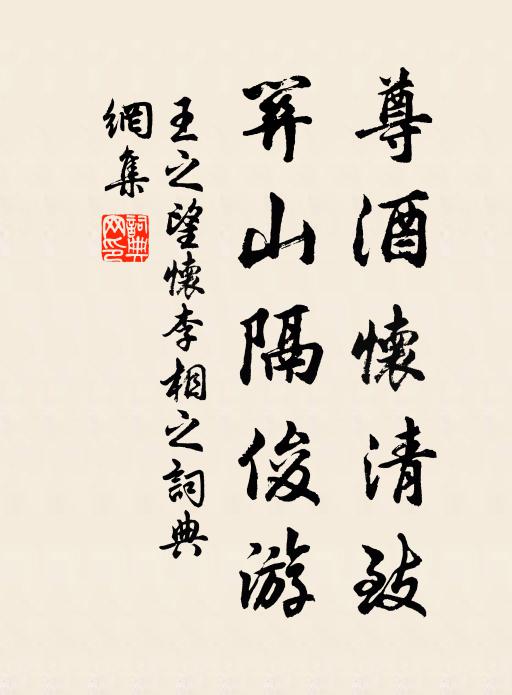 尊酒懷清致
關山隔俊游
王之望懷李相之詞典
網集
詞典網印